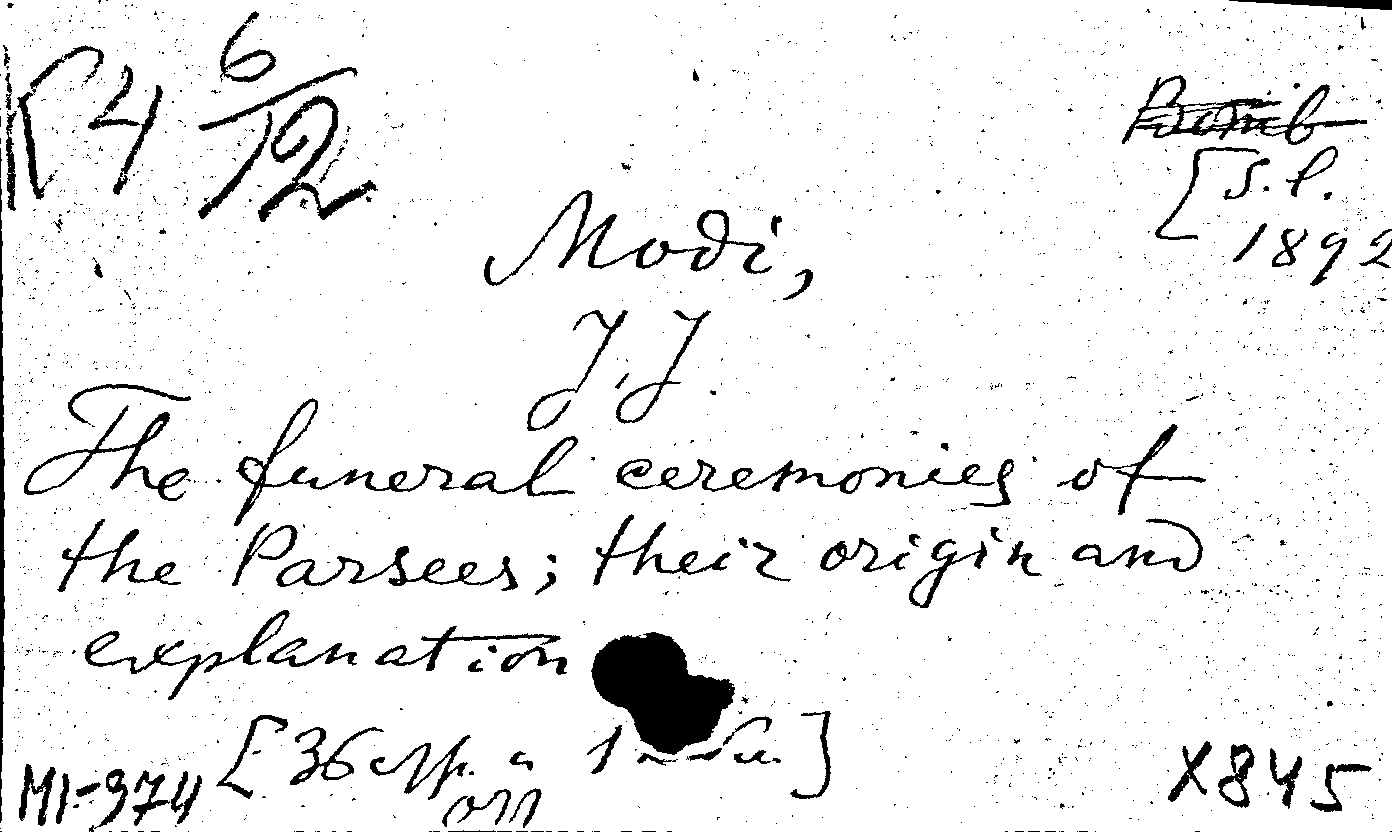 К4 6/12
Bomb
[S.l.
1892
Modi,
J.J.
The funeral ceremonies of
the Parsees; their origin and
explanation
[36 стр. и 1
МІ-974
X845